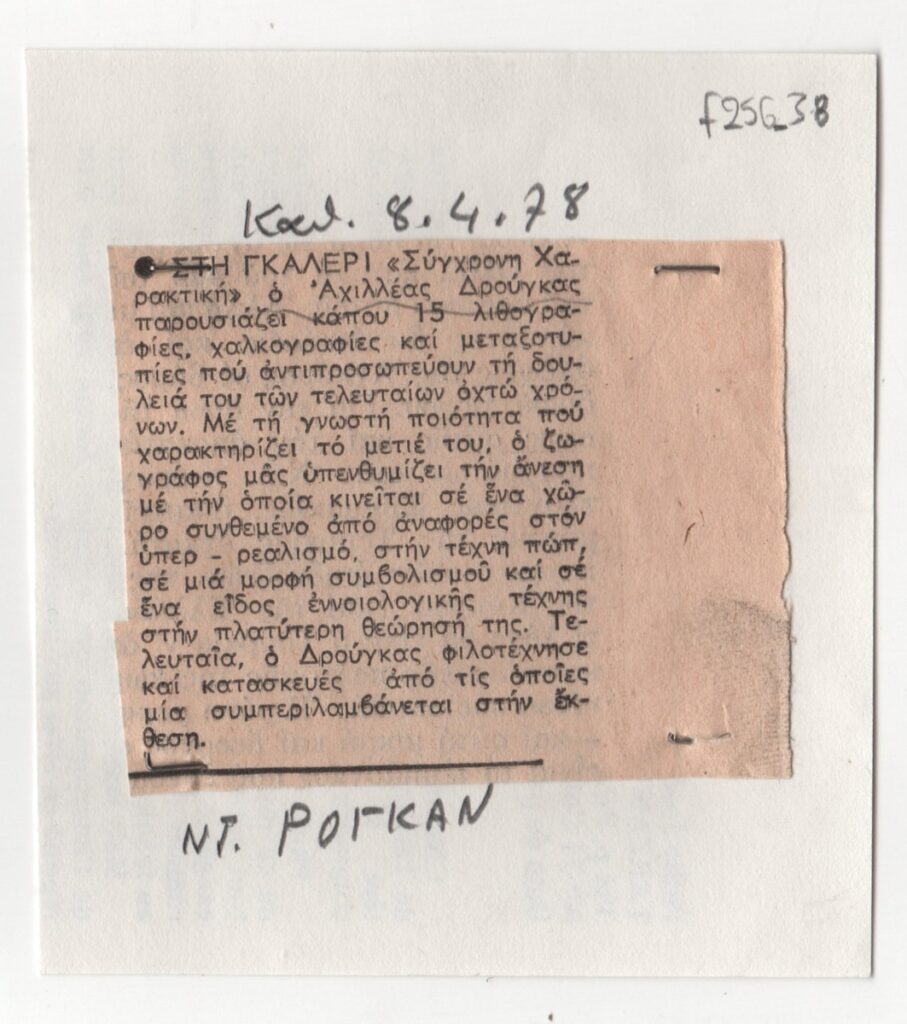 f25G_38
Καθ. 8.4.78
● ΣΤΗ ΓΚΑΛΕΡΙ «Σύγχρονη Χα-
ρακτική» ὁ Ἀχιλλέας Δρούγκας
παρουσιάζει κάπου 15 λιθογρα-
φίες, χαλκογραφίες καί μεταξοτυ-
πίες πού ἀντιπροσωπεύουν τή δου-
λειά του τῶν τελευταίων ὀχτώ χρό-
νων. Μέ τή γνωστή ποιότητα πού
χαρακτηρίζει τό μετιέ του, ὁ ζω-
γράφος μᾶς ὑπενθυμίζει τήν ἄνεση
μέ τήν ὁποία κινεῖται σέ ἕνα χῶ-
ρο συνθεμένο ἀπό ἀναφορές στόν
ὑπερ - ρεαλισμό, στήν τέχνη πώπ,
σέ μιά μορφή συμβολισμοῦ καί σέ
ἕνα εἶδος ἐννοιολογικῆς τέχνης
στήν πλατύτερη θεώρησή της. Τε-
λευταῖα, ὁ Δρούγκας φιλοτέχνησε
καί κατασκευές ἀπό τίς ὁποῖες
μία συμπεριλαμβάνεται στήν ἔκ-
θεση.
ΝΤ. ΡΟΓΚΑΝ